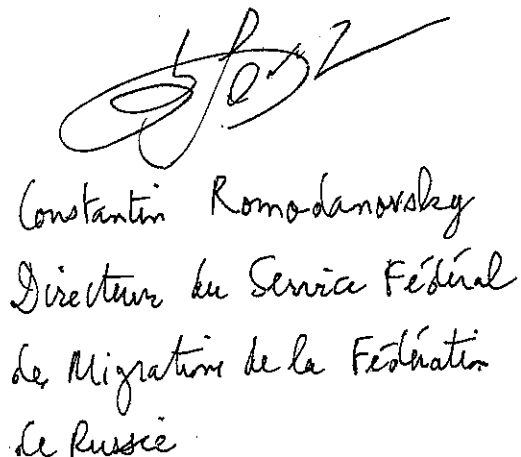 Constantin Romodanovsky
Directeur du Service Fédéral
de Migration de la Fédération
de Russie